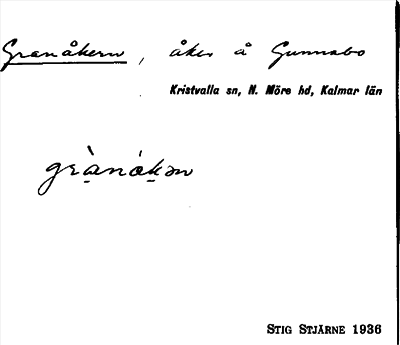 Granåkern, åker å Gunnabo
Kristvalla sn, N. Möre hd, Kalmar län
grànókən
STIG STJÄRNE 1936